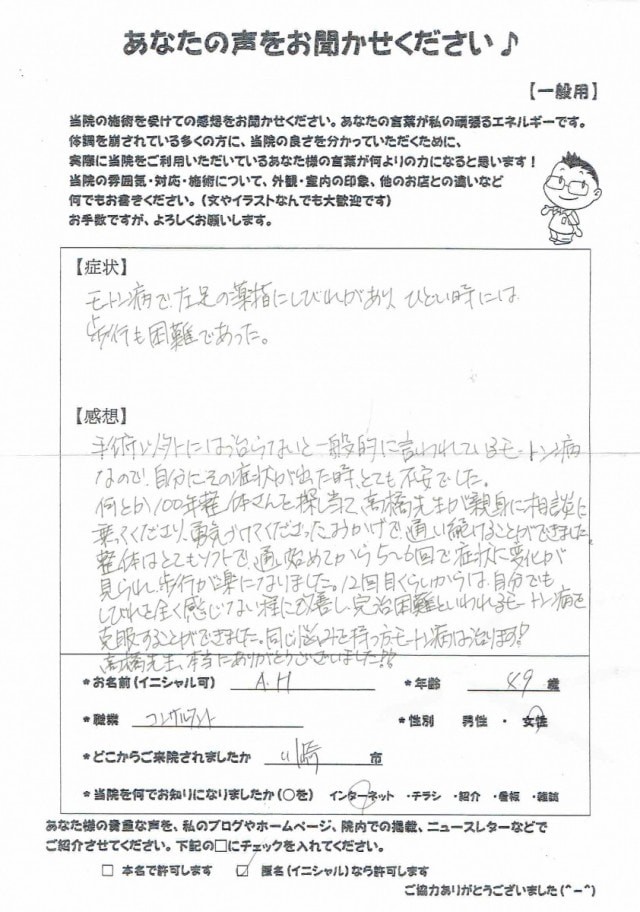 あなたの声をお聞かせください♪
【一般用】
当院の施術を受けての感想をお聞かせください。あなたの言葉が私の頑張るエネルギーです。
体調を崩されている多くの方に、当院の良さを分かっていただくために、
実際に当院をご利用いただいているあなた様の言葉が何よりの力になると思います！
当院の雰囲気・対応・施術について、外観・室内の印象、他のお店との違いなど
何でもお書きください。（文やイラストなんでも大歓迎です）
お手数ですが、よろしくお願いします。
【症状】
モートン病で、左足の薬指にしびれがあり、ひどい時には
歩行も困難であった。
【感想】
手術以外には治らないと一般的に言われているモートン病
なので、自分にその症状が出た時、とても不安でした。
何とか100年整体さんを探し当て、高橋先生が親身に相談に
乗ってくださり、勇気づけてくださったおかげで、通い続けることができました。
整体はとてもソフトで、通い始めてから5～6回で症状に変化が
見られ、歩行が楽になりました。12回目くらいからは、自分でも
しびれを全く感じない程に改善し、完治困難といわれるモートン病を
克服することができました。同じ悩みを持つ方、モートン病は治ります!
高橋先生、本当にありがとうございました!!
*お名前(イニシャル可) A.H *年齢 49 歳
*職業 コンサルタント *性別 男性 ・ 女性
*どこからご来院されましたか 川崎 市
*当院を何でお知りになりましたか(○を) インターネット ・チラシ ・紹介 ・看板 ・雑誌
あなた様の貴重な声を、私のブログやホームページ、院内での掲載、ニュースレターなどで
ご紹介させてください。下記の□にチェックを入れてください。
□ 本名で許可します ☑ 匿名(イニシャル)なら許可します
ご協力ありがとうございました(^-^)